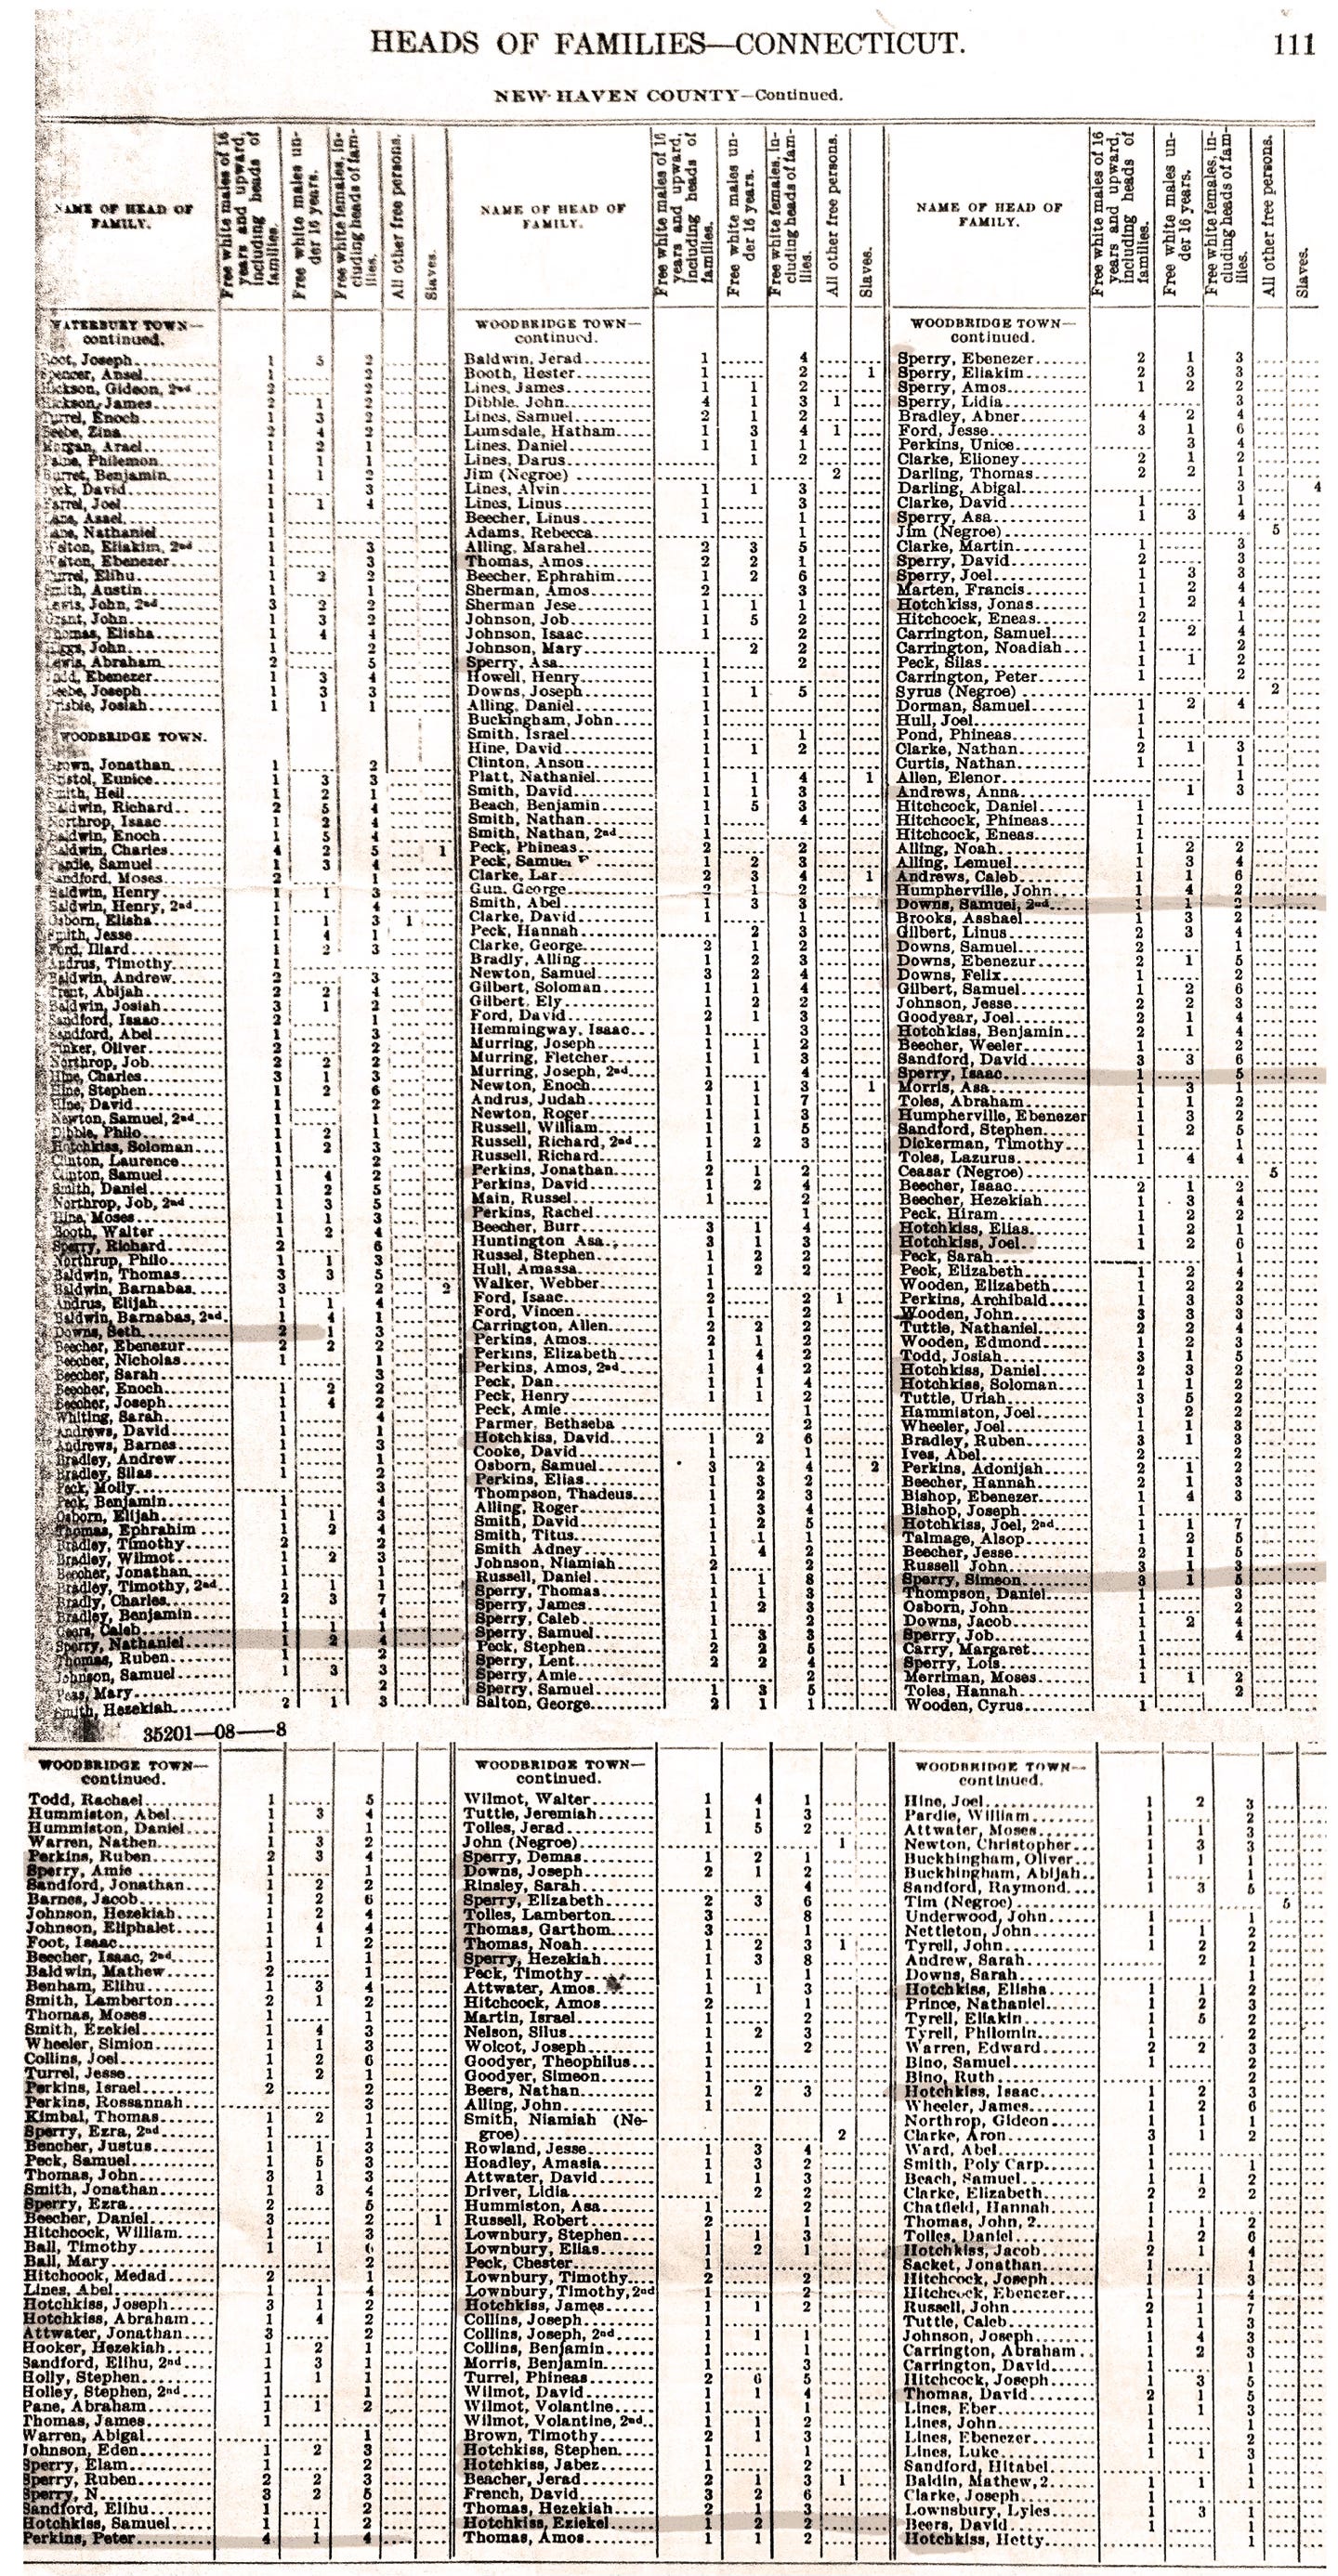 HEADS OF FAMILIES—CONNECTICUT. 111
NEW HAVEN COUNTY—Continued.
NAME OF HEAD OF FAMILY.
Free white males of 16 years and upward, including heads of families.
Free white males under 16 years.
Free white females, including heads of families.
All other free persons.
Slaves.
NAME OF HEAD OF FAMILY.
Free white males of 16 years and upward, including heads of families.
Free white males under 16 years.
Free white females, including heads of families.
All other free persons.
Slaves.
NAME OF HEAD OF FAMILY.
Free white males of 16 years and upward, including heads of families.
Free white males under 16 years.
Free white females, including heads of families.
All other free persons.
Slaves.
WATERBURY TOWN—continued.
Root, Joseph 1 5 2
Spencer, Ansel 1 2
Gideon, 2nd 2 2
James 2 1 2
Enoch 1 3 2
Beebe, Zina 2 4 2
Morgan, Arael 1 2 1
Philemon 1 1 1
Benjamin 1 1 2
David 1 3
Joel 1 1 4
Asael 1
Nathaniel 1
Eliakim, 2nd 1 3
Ebenezer 1 3
Elihu 1 2 2
Smith, Austin 1 1
Lewis, John, 2nd 3 2 2
Grant, John 1 3 2
Thomas, Elisha 1 4 4
John 1 2
Lewis, Abraham 2 5
Ebenezer 1 3 4
Beebe, Joseph 1 3 3
Frisbie, Josiah 1 1 1
WOODBRIDGE TOWN.
Brown, Jonathan 1 2
Bristol, Eunice 1 3 3
Smith, Heil 1 2 1
Baldwin, Richard 2 5 4
Northrop, Isaac 1 2 4
Baldwin, Enoch 1 5 4
Baldwin, Charles 4 2 5 1
Samuel 1 3 4
Sandford, Moses 2 1
Baldwin, Henry 1 1 3
Baldwin, Henry, 2nd 1 4
Osborn, Elisha 1 1 3 1
Smith, Jesse 1 4 1
Ford, Illard 1 2 3
Andrus, Timothy 1
Baldwin, Andrew 2 3
Trent, Abijah 2 2 4
Baldwin, Josiah 3 1 2
Sandford, Isaac 2 1
Sandford, Abel 1 3
Tinker, Oliver 2 2
Northrop, Job 2 2 2
Hine, Charles 3 1 3
Hine, Stephen 1 2 6
Hine, David 1 2
Newton, Samuel, 2nd 1 1
Dibble, Philo 1 2 1
Hotchkiss, Soloman 1 2 3
Clinton, Laurence 1 2
Clinton, Samuel 1 4 2
Smith, Daniel 1 2 5
Northrop, Job, 2nd 1 3 5
Hine, Moses 1 1 3
Booth, Walter 1 2 4
Sperry, Richard 2 6
Northrup, Philo 1 1 3
Baldwin, Thomas 3 3 5
Baldwin, Barnabas 3 2 2
Andrus, Elijah 1 1 4
Baldwin, Barnabas, 2nd 1 4 1
Downs, Seth 2 1 3
Beecher, Ebenezur 2 2 2
Beecher, Nicholas 1 1
Beecher, Sarah 3
Beecher, Enoch 1 2 2
Beecher, Joseph 1 4 2
Whiting, Sarah 1 4
Andrews, David 1 1
Andrews, Barnes 1 3
Bradley, Andrew 1 1
Bradley, Silas 1 2
Peck, Molly 3
Peck, Benjamin 1 4
Osborn, Elijah 1 1 3
Thomas, Ephrahim 1 2 4
Bradley, Timothy 2 2
Bradley, Wilmot 1 2 3
Beecher, Jonathan 1 1
Bradley, Timothy, 2nd 1 1 1
Bradly, Charles 2 3 7
Bradley, Benjamin 1 4
Caleb 1 1 1
Sperry, Nathaniel 1 2 4
Thomas, Ruben 1 2
Johnson, Samuel 1 3 3
Mary 2
Smith, Hezekiah 2 1 3
35201—08——8
WOODBRIDGE TOWN—continued.
Baldwin, Jerad 1 4
Booth, Hester 1 2 1
Lines, James 1 1 2
Dibble, John 4 1 3 1
Lines, Samuel 2 1 2
Lumsdale, Hatham 1 3 4 1
Lines, Daniel 1 1 1
Lines, Darus 1 2
Jim (Negroe) 2
Lines, Alvin 1 1 3
Lines, Linus 1 3
Beecher, Linus 1 1
Adams, Rebecca 1
Alling, Marahel 2 3 5
Thomas, Amos 2 2 1
Beecher, Ephrahim 1 2 6
Sherman, Amos 2 3
Sherman Jese 1 1 1
Johnson, Job 1 5 2
Johnson, Isaac 1 2
Johnson, Mary 2 2
Sperry, Asa 1 2
Howell, Henry 1
Downs, Joseph 1 1 5
Alling, Daniel 1
Buckingham, John 1
Smith, Israel 1 1
Hine, David 1 1 2
Clinton, Anson 1
Platt, Nathaniel 1 1 4 1
Smith, David 1 1 3
Beach, Benjamin 1 5 3
Smith, Nathan 1 4
Smith, Nathan, 2nd 1
Peck, Phineas 2 2
Peck, Samuel 1 2 3
Clarke, Lar 2 3 4 1
Gun, George 2 1 2
Smith, Abel 1 3 3
Clarke, David 1 1
Peck, Hannah 2 3
Clarke, George 2 1 2
Bradly, Alling 1 2 3
Newton, Samuel 3 2 4
Gilbert, Soloman 1 1 4
Gilbert, Ely 1 2 2
Ford, David 2 1 3
Hemmingway, Isaac 1 3
Murring, Joseph 1 1 2
Murring, Fletcher 1 1 3
Murring, Joseph, 2nd 1 4
Newton, Enoch 2 1 3 1
Andrus, Judah 1 1 7
Newton, Roger 1 1 3
Russell, William 1 1 5
Russell, Richard, 2nd 1 2 3
Russell, Richard 1
Perkins, Jonathan 2 1 2
Perkins, David 1 2 4
Main, Russel 1 2
Perkins, Rachel 1
Beecher, Burr 3 1 4
Huntington Asa 3 1 3
Russel, Stephen 1 2 2
Hull, Amassa 1 2 2
Walker, Webber 1
Ford, Isaac 2 2 1
Ford, Vincen 1 2
Carrington, Allen 2 2 2
Perkins, Amos 2 1 2
Perkins, Elizabeth 1 4 2
Perkins, Amos, 2nd 1 4 2
Peck, Dan 1 1 4
Peck, Henry 1 1 2
Peck, Amie 1
Parmer, Bethseba 2
Hotchkiss, David 1 2 6
Cooke, David 1 1
Osborn, Samuel 3 2 4 2
Perkins, Elias 1 3 2
Thompson, Thadeus 1 2 3
Alling, Roger 1 3 4
Smith, David 1 2 5
Smith, Titus 1 1 1
Smith Adney 1 4 2
Johnson, Niamiah 2 2
Russell, Daniel 1 1 8
Sperry, Thomas 1 1 3
Sperry, James 1 2 3
Sperry, Caleb 1 2
Sperry, Samuel 1 3 3
Peck, Stephen 2 2 5
Sperry, Lent 2 2 4
Sperry, Amie 2
Sperry, Samuel 1 3 5
Salton, George 2 1 1
WOODBRIDGE TOWN—continued.
Sperry, Ebenezer 2 1 3
Sperry, Eliakim 2 3 3
Sperry, Amos 1 2 2
Sperry, Lidia 3
Bradley, Abner 4 2 4
Ford, Jesse 3 1 6
Perkins, Unice 3 4
Clarke, Elioney 2 1 2
Darling, Thomas 2 2 1
Darling, Abigal 3 4
Clarke, David 1 1
Sperry, Asa 1 3 4
Jim (Negroe) 5
Clarke, Martin 1 3
Sperry, David 2 3
Sperry, Joel 1 3 3
Marten, Francis 1 2 4
Hotchkiss, Jonas 1 2 4
Hitchcock, Eneas 2 1
Carrington, Samuel 1 2 4
Carrington, Noadiah 1 2
Peck, Silas 1 1 2
Carrington, Peter 1 2
Syrus (Negroe) 2
Dorman, Samuel 1 2 4
Hull, Joel 1
Pond, Phineas 1
Clarke, Nathan 2 1 3
Curtis, Nathan 1 1
Allen, Elenor 1
Andrews, Anna 1 3
Hitchcock, Daniel 1
Hitchcock, Phineas 1
Hitchcock, Eneas 1
Alling, Noah 1 2 2
Alling, Lemuel 1 3 4
Andrews, Caleb 1 1 6
Humpherville, John 1 4 2
Downs, Samuel, 2nd 1 1 2
Brooks, Asshael 1 3 2
Gilbert, Linus 2 3 4
Downs, Samuel 2 1
Downs, Ebenezur 2 1 5
Downs, Felix 1 2
Gilbert, Samuel 1 2 6
Johnson, Jesse 2 2 3
Goodyear, Joel 2 1 4
Hotchkiss, Benjamin 2 1 4
Beecher, Weeler 1 2
Sandford, David 3 3 6
Sperry, Isaac 1 5
Morris, Asa 1 3 1
Toles, Abraham 1 1 2
Humpherville, Ebenezer 1 3 2
Sandford, Stephen 1 2 5
Dickerman, Timothy 1 1
Toles, Lazurus 1 4 4
Ceasar (Negroe) 5
Beecher, Isaac 2 1 2
Beecher, Hezekiah 1 3 4
Peck, Hiram 1 2 2
Hotchkiss, Elias 1 2 1
Hotchkiss, Joel 1 2 6
Peck, Sarah 1
Peck, Elizabeth 1 2 4
Wooden, Elizabeth 1 2 2
Perkins, Archibald 1 3 3
Wooden, John 3 3 3
Tuttle, Nathaniel 2 2 4
Wooden, Edmond 1 2 3
Todd, Josiah 3 1 5
Hotchkiss, Daniel 2 3 2
Hotchkiss, Soloman 1 1 2
Tuttle, Uriah 3 5 2
Hammiston, Joel 1 2 2
Wheeler, Joel 1 1 3
Bradley, Ruben 3 1 3
Ives, Abel 2 2
Perkins, Adonijah 2 1 2
Beecher, Hannah 2 1 3
Bishop, Ebenezer 1 4 3
Bishop, Joseph 1
Hotchkiss, Joel, 2nd 1 1 7
Talmage, Alsop 1 2 5
Beecher, Jesse 2 1 5
Russell John 3 1 3
Sperry, Simeon 3 1 5
Thompson, Daniel 1 3
Osborn, John 1 2
Downs, Jacob 1 2 4
Sperry, Job 1 4
Carry, Margaret 1
Sperry, Lois 1
Merriman, Moses 1 1 2
Toles, Hannah 2
Wooden, Cyrus 1
WOODBRIDGE TOWN—continued.
Todd, Rachael 1 5
Hummiston, Abel 1 3 4
Hummiston, Daniel 1 1
Warren, Nathen 1 3 2
Perkins, Ruben 2 3 4
Sperry, Amie 1 1
Sandford, Jonathan 1 2 2
Barnes, Jacob 1 2 6
Johnson, Hezekiah 1 2 4
Johnson, Eliphalet 1 4 4
Foot, Isaac 1 1 2
Beecher, Isaac, 2nd 1 1
Baldwin, Mathew 2 1
Benham, Elihu 1 3 4
Smith, Lamberton 2 1 2
Thomas, Moses 1 1
Smith, Ezekiel 1 4 3
Wheeler, Simion 1 1 3
Collins, Joel 1 2 6
Turrel, Jesse 1 2 1
Perkins, Israel 2 2
Perkins, Rossannah 3
Kimbal, Thomas 1 2 1
Sperry, Ezra, 2nd 1 1
Bencher, Justus 1 1 3
Peck, Samuel 1 5 3
Thomas, John 3 1 3
Smith, Jonathan 1 3 4
Sperry, Ezra 2 5
Beecher, Daniel 3 2 1
Hitchcock, William 1 3
Ball, Timothy 1 1 6
Ball, Mary 2
Hitchcock, Medad 2 1
Lines, Abel 1 1 4
Hotchkiss, Joseph 3 1 2
Hotchkiss, Abraham 1 4 2
Attwater, Jonathan 3 2
Hooker, Hezekiah 1 2 1
Sandford, Elihu, 2nd 1 3 1
Holly, Stephen 1 1 1
Holley, Stephen, 2nd 1 1
Pane, Abraham 1 1 2
Thomas, James 1
Warren, Abigal 1
Johnson, Eden 1 2 3
Sperry, Elam 1 2
Sperry, Ruben 2 2 3
Sperry, N 3 2 5
Sandford, Elihu 1 2
Hotchkiss, Samuel 1 1 2
Perkins, Peter 4 1 4
WOODBRIDGE TOWN—continued.
Wilmot, Walter 1 4 1
Tuttle, Jeremiah 1 1 3
Tolles, Jerad 1 5 2
John (Negroe) 1
Sperry, Demas 1 2 1
Downs, Joseph 2 1 2
Rinsley, Sarah 4
Sperry, Elizabeth 2 3 6
Tolles, Lamberton 3 8
Thomas, Garthom 3 1
Thomas, Noah 1 2 3 1
Sperry, Hezekiah 1 3 8
Peck, Timothy 1 1
Attwater, Amos 1 1 3
Hitchcock, Amos 2 1
Martin, Israel 1 2
Nelson, Silus 1 2 3
Wolcot, Joseph 1 2
Goodyer, Theophilus 1
Goodyer, Simeon 1
Beers, Nathan 1 2 3
Alling, John 1
Smith, Niamiah (Ne-
groe) 2
Rowland, Jesse 1 3 4
Hoadley, Amasia 1 3 2
Attwater, David 1 1 3
Driver, Lidia 2 2
Hummiston, Asa 1 2
Russell, Robert 2 1
Lownbury, Stephen 1 1 3
Lownbury, Elias 1 2 1
Peck, Chester 1
Lownbury, Timothy 2 2
Lownbury, Timothy, 2nd 1 2
Hotchkiss, James 1 1 2
Collins, Joseph 1
Collins, Joseph, 2nd 1 1 1
Collins, Benjamin 1 1
Morris, Benjamin 1 3
Turrel, Phineas 2 6 5
Wilmot, David 1 1 4
Wilmot, Volantine 1 1
Wilmot, Volantine, 2nd 1 1 2
Brown, Timothy 2 1 3
Hotchkiss, Stephen 1 1
Hotchkiss, Jabez 1 2
Beacher, Jerad 2 1 3 1
French, David 3 2 6
Thomas, Hezekiah 2 1 3
Hotchkiss, Eziekel 1 2 2
Thomas, Amos 1 1 2
WOODBRIDGE TOWN—continued.
Hine, Joel 1 2 3
Pardie, William 1 2
Attwater, Moses 1 1 3
Newton, Christopher 1 3 3
Buckhingham, Oliver 1 1 1
Buckhingham, Abijah 1 1
Sandford, Raymond 1 3 5
Tim (Negroe) 5
Underwood, John 1 1
Nettleton, John 1 1 2
Tyrell, John 1 2 2
Andrew, Sarah 2 1
Downs, Sarah 1
Hotchkiss, Elisha 1 1 2
Prince, Nathaniel 1 2 3
Tyrell, Eliakin 1 5 2
Tyrell, Philomin 1 2
Warren, Edward 2 2 3
Bino, Samuel 1 2
Bino, Ruth 2
Hotchkiss, Isaac 1 2 3
Wheeler, James 1 2 6
Northrop, Gideon 1 1 1
Clarke, Aron 3 1 2
Ward, Abel 1
Smith, Poly Carp 1 1
Beach, Samuel 1 1 2
Clarke, Elizabeth 2 2 2
Chatfield, Hannah 1
Thomas, John, 2 1 1 2
Tolles, Daniel 1 2 6
Hotchkiss, Jacob 2 1 4
Sacket, Jonathan 1 1
Hitchcock, Joseph 1 1 3
Hitchcock, Ebenezer 1 1 4
Russell, John 2 1 7
Tuttle, Caleb 1 1 3
Johnson, Joseph 1 4 3
Carrington, Abraham 1 2 3
Carrington, David 1 1
Hitchcock, Joseph 1 3 5
Thomas, David 2 1 5
Lines, Eber 1 1 3
Lines, John 1 1
Lines, Ebenezer 1 2
Lines, Luke 1 1 3
Sandford, Hitabel 1
Baldin, Mathew, 2 1 1 1
Clarke, Joseph 1
Lownsbury, Lyles 1 3 1
Beers, David 1 1
Hotchkiss, Hetty 1